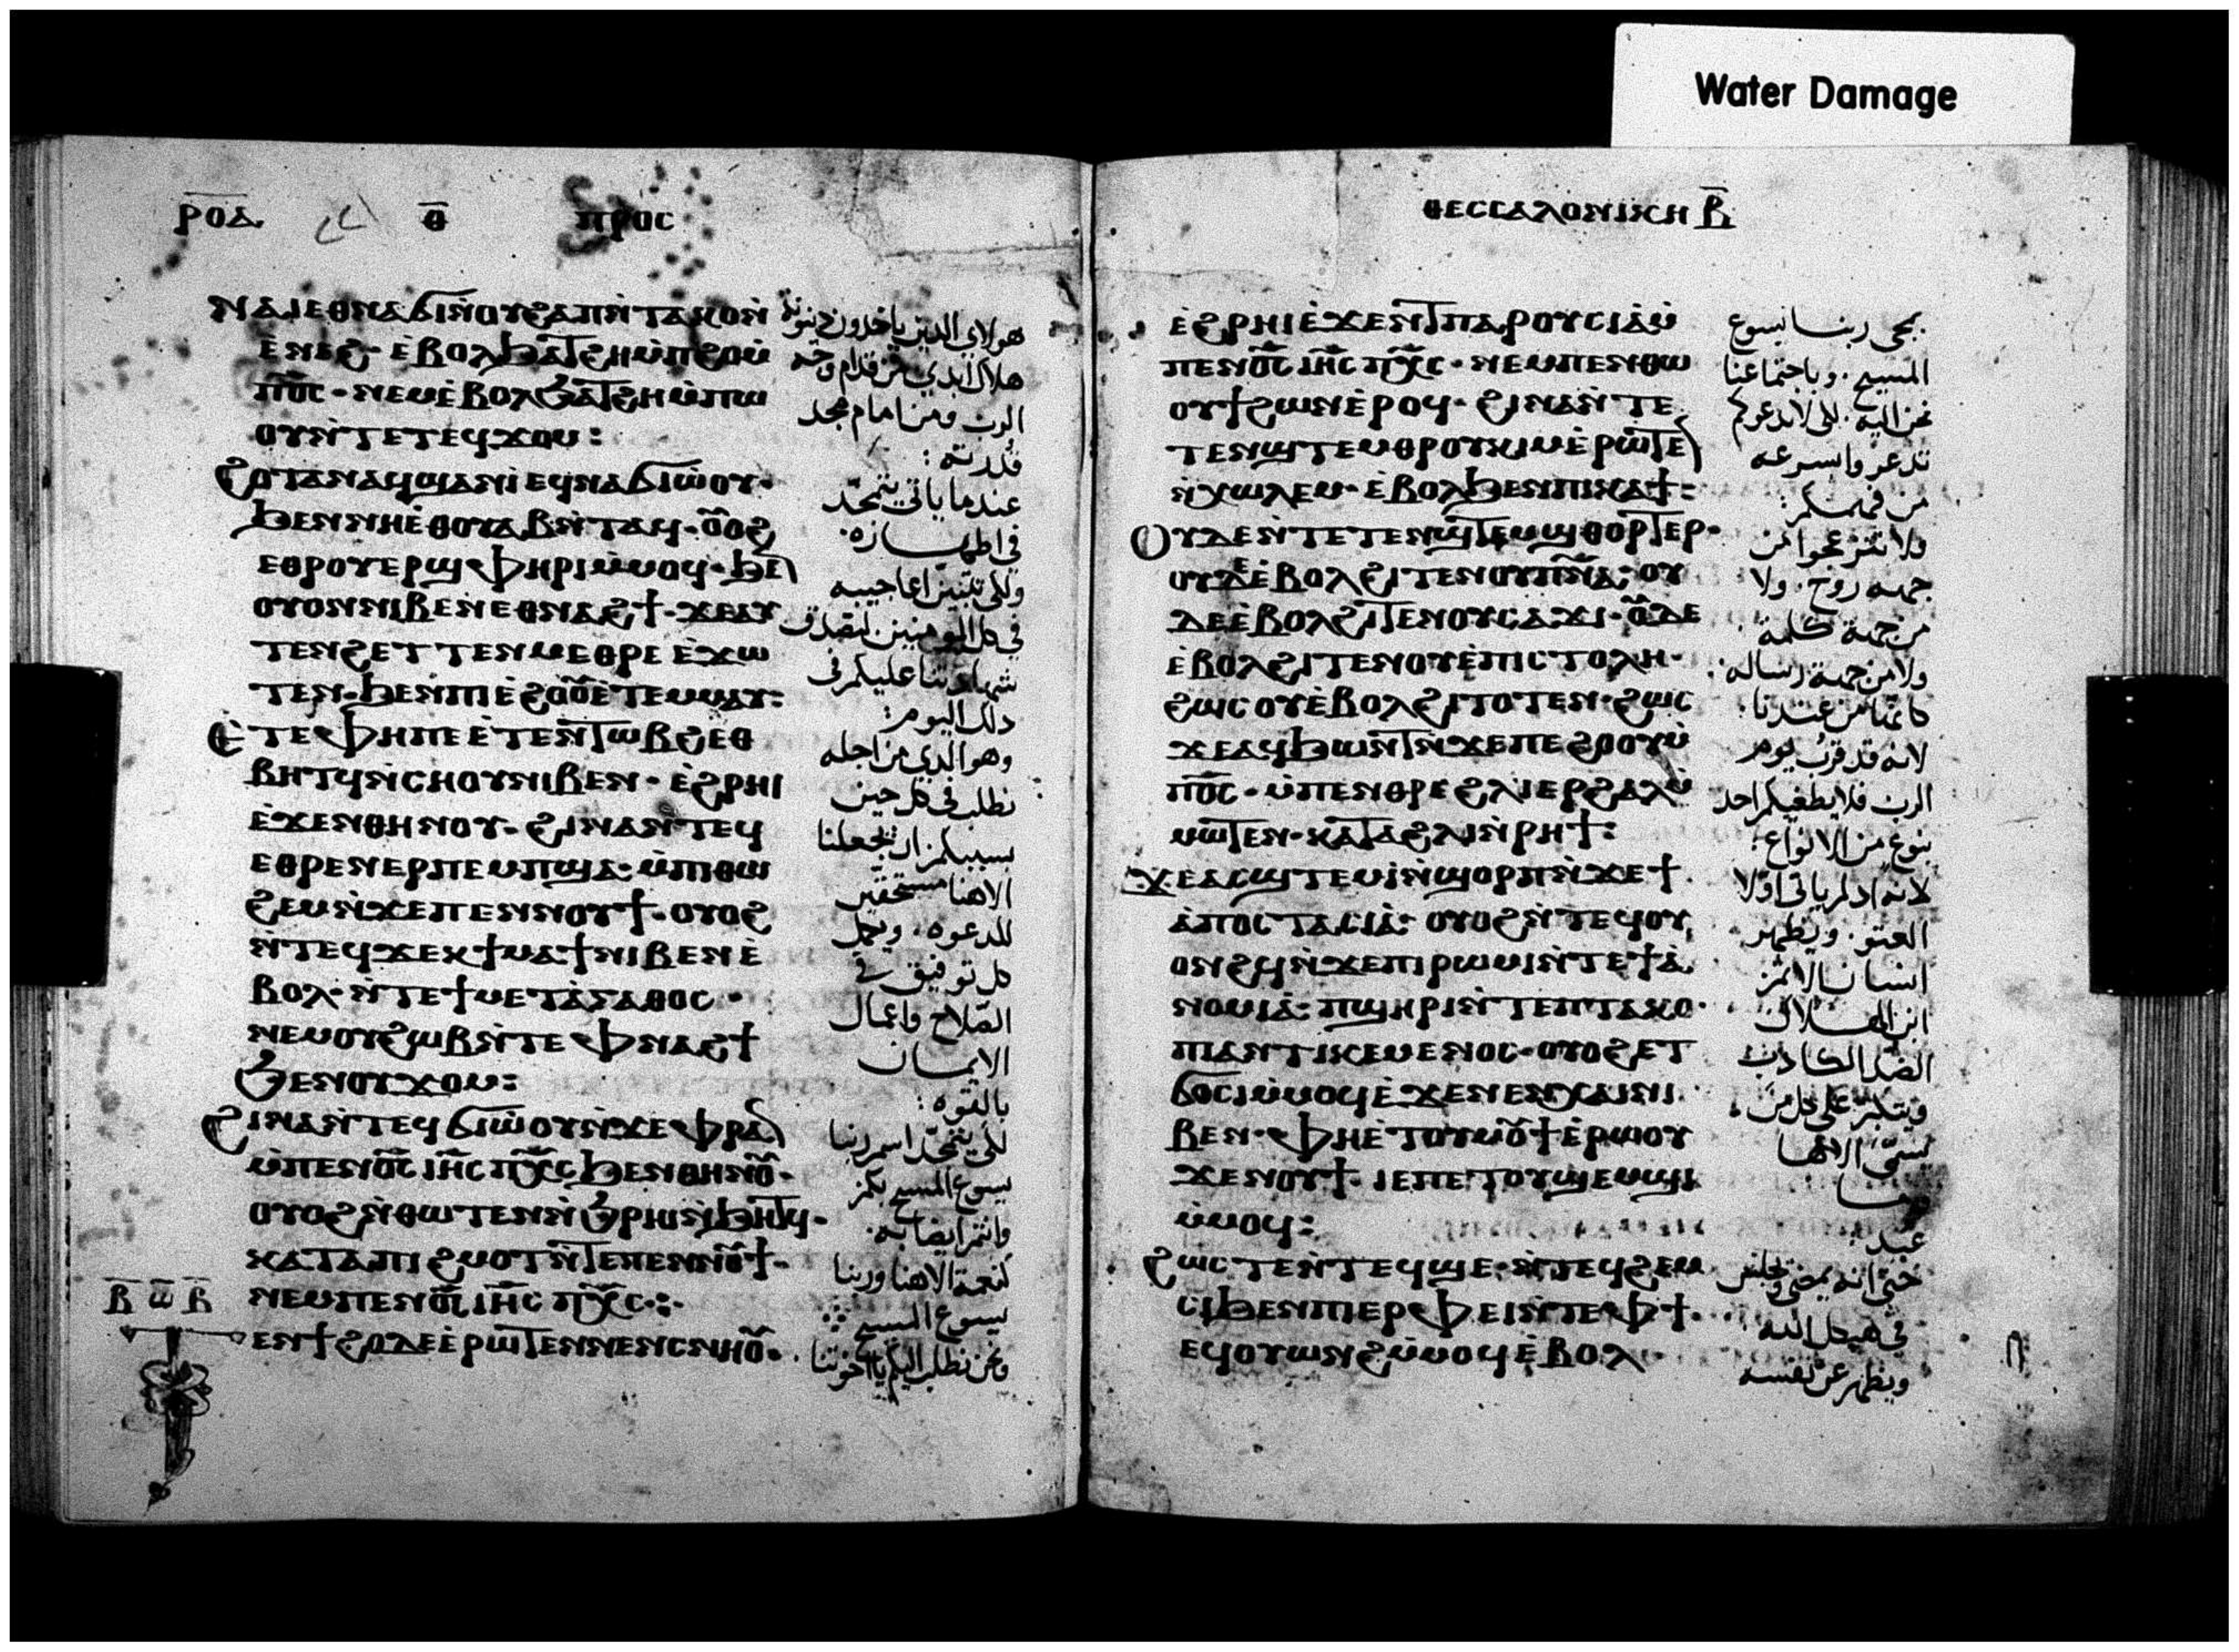 Water Damage
ⲣⲟⲇ ⲑ̅ ⲡⲣⲟⲥ
ⲛⲁⲓⲉⲑⲛⲁϭⲓⲛ̀ⲟⲩϩⲁⲡⲛ̀ⲧⲁⲕⲟⲛ̀
ⲉ̀ⲛⲉϩ· ⲉ̀ⲃⲟⲗϧⲁⲧϩⲏⲙ̀ⲡϩⲟⲙ̀
ⲡⲟ̅ⲥ̅· ⲛⲉⲙⲉ̀ⲃⲟⲗϧⲁⲧϩⲏⲙ̀ⲡⲱ
ⲟⲩⲛ̀ⲧⲉⲧⲉϥϫⲟⲙ:
ϩⲟⲧⲁⲛⲁϥϣⲁⲛⲓ̀ⲉϥⲛⲁϭⲓⲱ̀ⲟⲩ·
ϧⲉⲛⲛⲏⲉ̀ⲑⲟⲩⲁⲃⲛ̀ⲧⲁϥ· ⲟ̅ⲟϩ
ⲉⲑⲣⲟⲩⲉⲣϣⲫⲏⲣⲓⲙ̀ⲙⲟϥ· ϧⲉ
ⲟⲩⲟⲛⲛⲓⲃⲉⲛⲉⲑⲛⲁϩϯ· ϫⲉⲁⲩ
ⲧⲉⲛϩⲉⲧⲧⲉⲛⲙⲉⲑⲣⲉ ⲉ̀ϫⲱ
ⲧⲉⲛ· ϧⲉⲛⲡⲓⲉ̀ϩⲟⲟ̅ⲉ̀ⲧⲉⲙⲙⲁⲩ:
ⲉ̀ⲧⲉⲫⲏⲡⲉ ⲉ̀ⲧⲉⲛⲧⲱⲃϩⲉⲑ
ⲃⲏⲧϥⲛ̀ⲥⲏⲟⲩⲛⲓⲃⲉⲛ· ⲉ̀ϩⲣⲏⲓ
ⲉ̀ϫⲉⲛⲑⲏⲛⲟⲩ· ϩⲓⲛⲁⲛ̀ⲧⲉϥ
ⲉⲑⲣⲉⲛⲉⲣⲡⲉⲙⲡϣⲁ· ⲙ̀ⲡⲓⲑⲱ
ϩⲉⲙⲛ̀ϫⲉⲡⲉⲛⲛⲟⲩϯ· ⲟⲩⲟϩ
ⲛ̀ⲧⲉϥϫⲉⲕϯⲙⲁϯⲛⲓⲃⲉⲛⲉ̀
ⲃⲟⲗ· ⲛ̀ⲧⲉϯⲙⲉⲧⲁ̀ⲅⲁⲑⲟⲥ·
ⲛⲉⲙⲟⲩϩⲱⲃⲛ̀ⲧⲉⲫⲛⲁϩϯ
ϧⲉⲛⲟⲩϫⲟⲙ:
ϩⲓⲛⲁⲛ̀ⲧⲉϥϭⲓⲱ̀ⲟⲩⲛ̀ϫⲉⲫⲣⲁ
ⲙ̀ⲡⲉⲛⲟ̅ⲥ̅ ⲓⲏ̅ⲥ̅ ⲡⲭ̅ⲥ̅ ϧⲉⲛⲑⲏⲛⲟ̅·
ⲟⲩⲟϩⲛ̀ⲑⲱⲧⲉⲛⲛ̀ϧⲣⲏⲓⲛ̀ϧⲏⲧϥ·
ⲕⲁⲧⲁⲡⲓϩⲙⲟⲧⲛ̀ⲧⲉⲡⲉⲛⲛⲟ̅ϯ·
ⲃ̅ ⲱ̅ ⲃ̅ ⲛⲉⲙⲡⲉⲛⲟ̅ⲥ̅ ⲓⲏ̅ⲥ̅ ⲡⲭ̅ⲥ̅:
ⲉⲛϯϩⲟⲇⲉⲉ̀ⲣⲱⲧⲉⲛⲛⲉⲛⲥⲛⲏⲟ̅·
هولاي الدين ياخدون دينونة
هلاك ابدي من قدام وجه
الرب ومن امام مجد
قدرته:
عندما ياتي يتمجّد
في اطهاره·
وللى تتبين اعاجيبه
في كل المومنين لتصدق
شهادتنا عليكم في
دلك اليوم:
وهو الدي من اجله
نطلب في كل حين
بسببكم ان تجعلنا
الاهنا مستحقين
للدعوه· ويكمل
كل توفيق في
الصّلاح واعمال
الايمان
بالقوه:
للى يتمجّد اسم ربنا
يسوع المسيح بكم
وانتم ايضا به·
كنعمة الاهنا وربنا
يسوع المسيح
ونحن نطلب اليكم يا اخوتنا
ⲑⲉⲥⲥⲁⲗⲟⲛⲓⲕⲏ ⲃ̅
ⲉ̀ϩⲣⲏⲓⲉ̀ϫⲉⲛϯⲡⲁⲣⲟⲩⲥⲓⲁ̀ⲙ̀
ⲡⲉⲛⲟ̅ⲥ̅ ⲓⲏ̅ⲥ̅ ⲡⲭ̅ⲥ̅· ⲛⲉⲙⲡⲉⲛⲑⲱ
ⲟⲩϯϩⲱⲛⲉ̀ⲣⲟϥ· ϩⲓⲛⲁⲛ̀ⲧⲉ
ⲧⲉⲛϣⲧⲉⲙⲑⲣⲟⲩⲕⲓⲙⲉ̀ⲣⲱⲧⲉ
ⲛ̀ⲭⲱⲗⲉⲙ· ⲉ̀ⲃⲟⲗϧⲉⲛⲡⲓⲕⲁϯ:
ⲟⲩⲇⲉⲛ̀ⲧⲉⲧⲉⲛϣⲧⲉⲙϣⲑⲟⲣⲧⲉⲣ·
ⲟⲩⲇⲉⲉ̀ⲃⲟⲗϩⲓⲧⲉⲛⲟⲩⲡⲛ̅ⲁ̅· ⲟⲩ
ⲇⲉⲉ̀ⲃⲟⲗϩⲓⲧⲉⲛⲟⲩⲥⲁϫⲓ· ⲟ̅ⲇⲉ
ⲉ̀ⲃⲟⲗϩⲓⲧⲉⲛⲟⲩⲉ̀ⲡⲓⲥⲧⲟⲗⲏ·
ϩⲱⲥⲟⲩⲉ̀ⲃⲟⲗϩⲓⲧⲟⲧⲉⲛ· ϩⲱⲥ
ϫⲉⲁϥϧⲱⲛⲧⲛ̀ϫⲉⲡⲉϩⲟⲟⲩⲙ̀
ⲡⲟ̅ⲥ̅· ⲙ̀ⲡⲉⲛⲑⲣⲉϩⲗⲓⲉⲣϩⲁⲗⲙ̀
ⲙⲱⲧⲉⲛ· ⲕⲁⲧⲁϩⲗⲓⲛ̀ⲣⲏϯ:
ϫⲉⲁⲥϣⲧⲉⲙⲓ̀ⲛ̀ϣⲟⲣⲡⲛ̀ϫⲉϯ
ⲁ̀ⲡⲟⲥⲧⲁⲥⲓⲁ̀· ⲟⲩⲟϩⲛ̀ⲧⲉϥⲟⲩ
ⲟⲛϩϥⲛ̀ϫⲉⲡⲓⲣⲱⲙⲓⲛ̀ⲧⲉϯⲁ̀
ⲛⲟⲙⲓⲁ̀· ⲡϣⲏⲣⲓⲛ̀ⲧⲉⲡⲧⲁⲕⲟ·
ⲡⲓⲁⲛⲧⲓⲕⲉⲙⲉⲛⲟⲥ· ⲟⲩⲟϩⲉⲧ
ϭⲟⲥⲓⲙ̀ⲙⲟϥⲉ̀ϫⲉⲛⲉⲛⲭⲁⲓⲛⲓ
ⲃⲉⲛ· ⲫⲏⲉ̀ⲧⲟⲩⲙⲟ̅ϯⲉ̀ⲣⲱⲟⲩ
ϫⲉⲛⲟⲩϯ· ⲓⲉⲡⲉⲧⲟⲩϣⲉⲙϣⲓ
ⲙ̀ⲙⲟϥ:
ϩⲱⲥⲧⲉⲛ̀ⲧⲉϥϣⲉ· ⲛ̀ⲧⲉϥϩⲉⲙ
ⲥⲓϧⲉⲛⲡⲓⲉⲣⲫⲉⲓⲛ̀ⲧⲉⲫϯ·
ⲉϥⲟⲩⲱⲛϩⲙ̀ⲙⲟϥⲉ̀ⲃⲟⲗ
بمجى ربنا يسوع
المسيح· وباجتماعنا
نحن اليه· للى لا تدعوكم
تدعرّوا بسرعه
من فهمكم:
ولا تنزعجوا من
جهه روح· ولا
من جهة كلمة·
ولا من جهة رساله:
كانّها من عندنا·
لانه قد قرب يوم
الرب فلا يطغيكم احد
بنوع من الانواع:
لانه اد لم ياتي اوّلا
العتو· ويظهر
انسان الاثم
ابن الهلاك
الضدّ الكادب
ويتكبّر على كل من
يسمّى الاها
عبد:
حتّى انه يمضي ويجلس
في هيكل الله
ويظهر عن نفسه